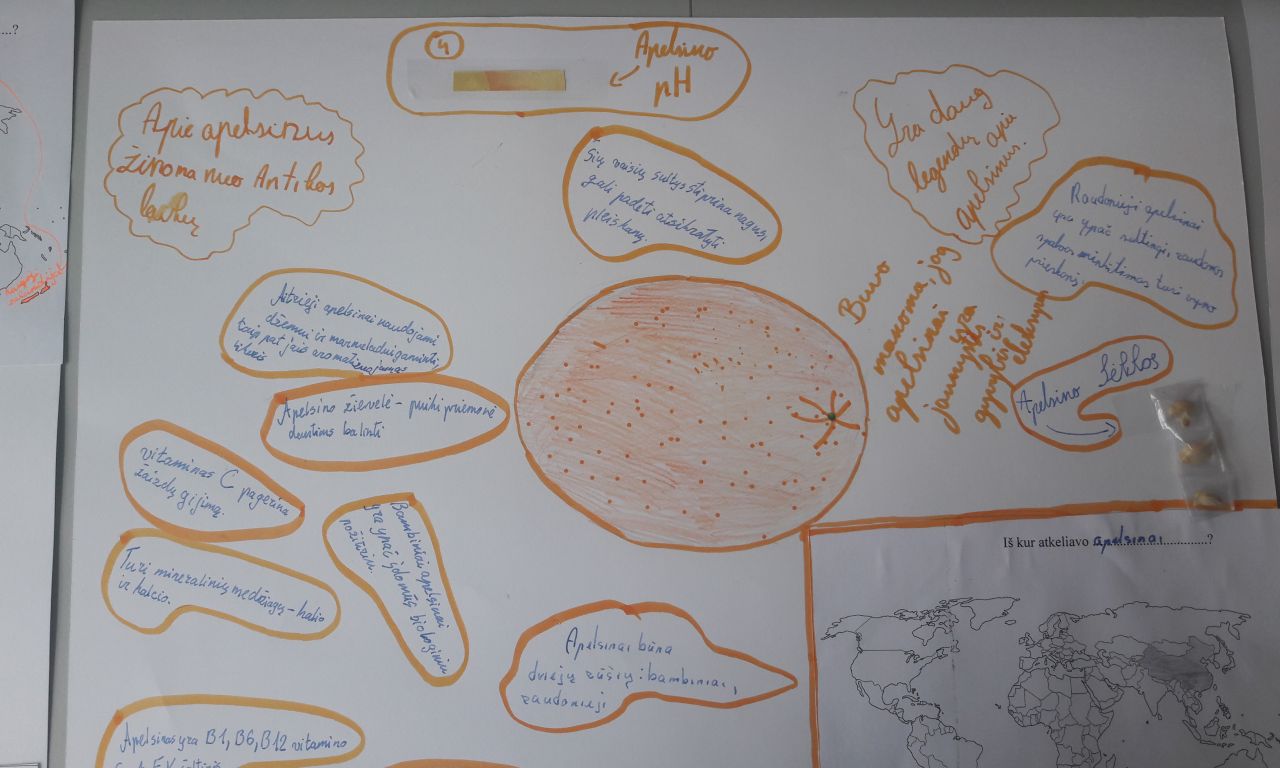 ...?
4
Apelsino
pH
Apie apelsinus
žinoma nuo Antikos
laikų
Šių vaisių sultys stiprina nagus,
gali padėti atsikratyti
pleiskanų.
Yra daug
legendų apie
apelsinus.
Raudonieji apelsinai
yra ypač sultingi, raudonos
spalvos minkštimas turi vyno
prieskonį.
Buvo
manoma, jog
apelsinai yra
jaunystės ir
gyvybės eleksyras
Apelsino sėklos
Aitrieji apelsinai naudojami
džemui ir marmeladui gaminti,
taip pat jais aromatizuojamas
likeris
Apelsino žievelė - puiki priemonė
dantims balinti
vitaminas C pagerina
žaizdų gijimą.
Turi mineralinių medžiagų - kalio
ir kalcio.
Bambiniai apelsinai
yra ypač įdomūs biologiniu
požiūriu.
Apelsinai būna
dviejų rūšių: bambiniai,
raudonieji
Apelsinas yra B1, B6, B12 vitamino
Iš kur atkeliavo apelsinai..............?